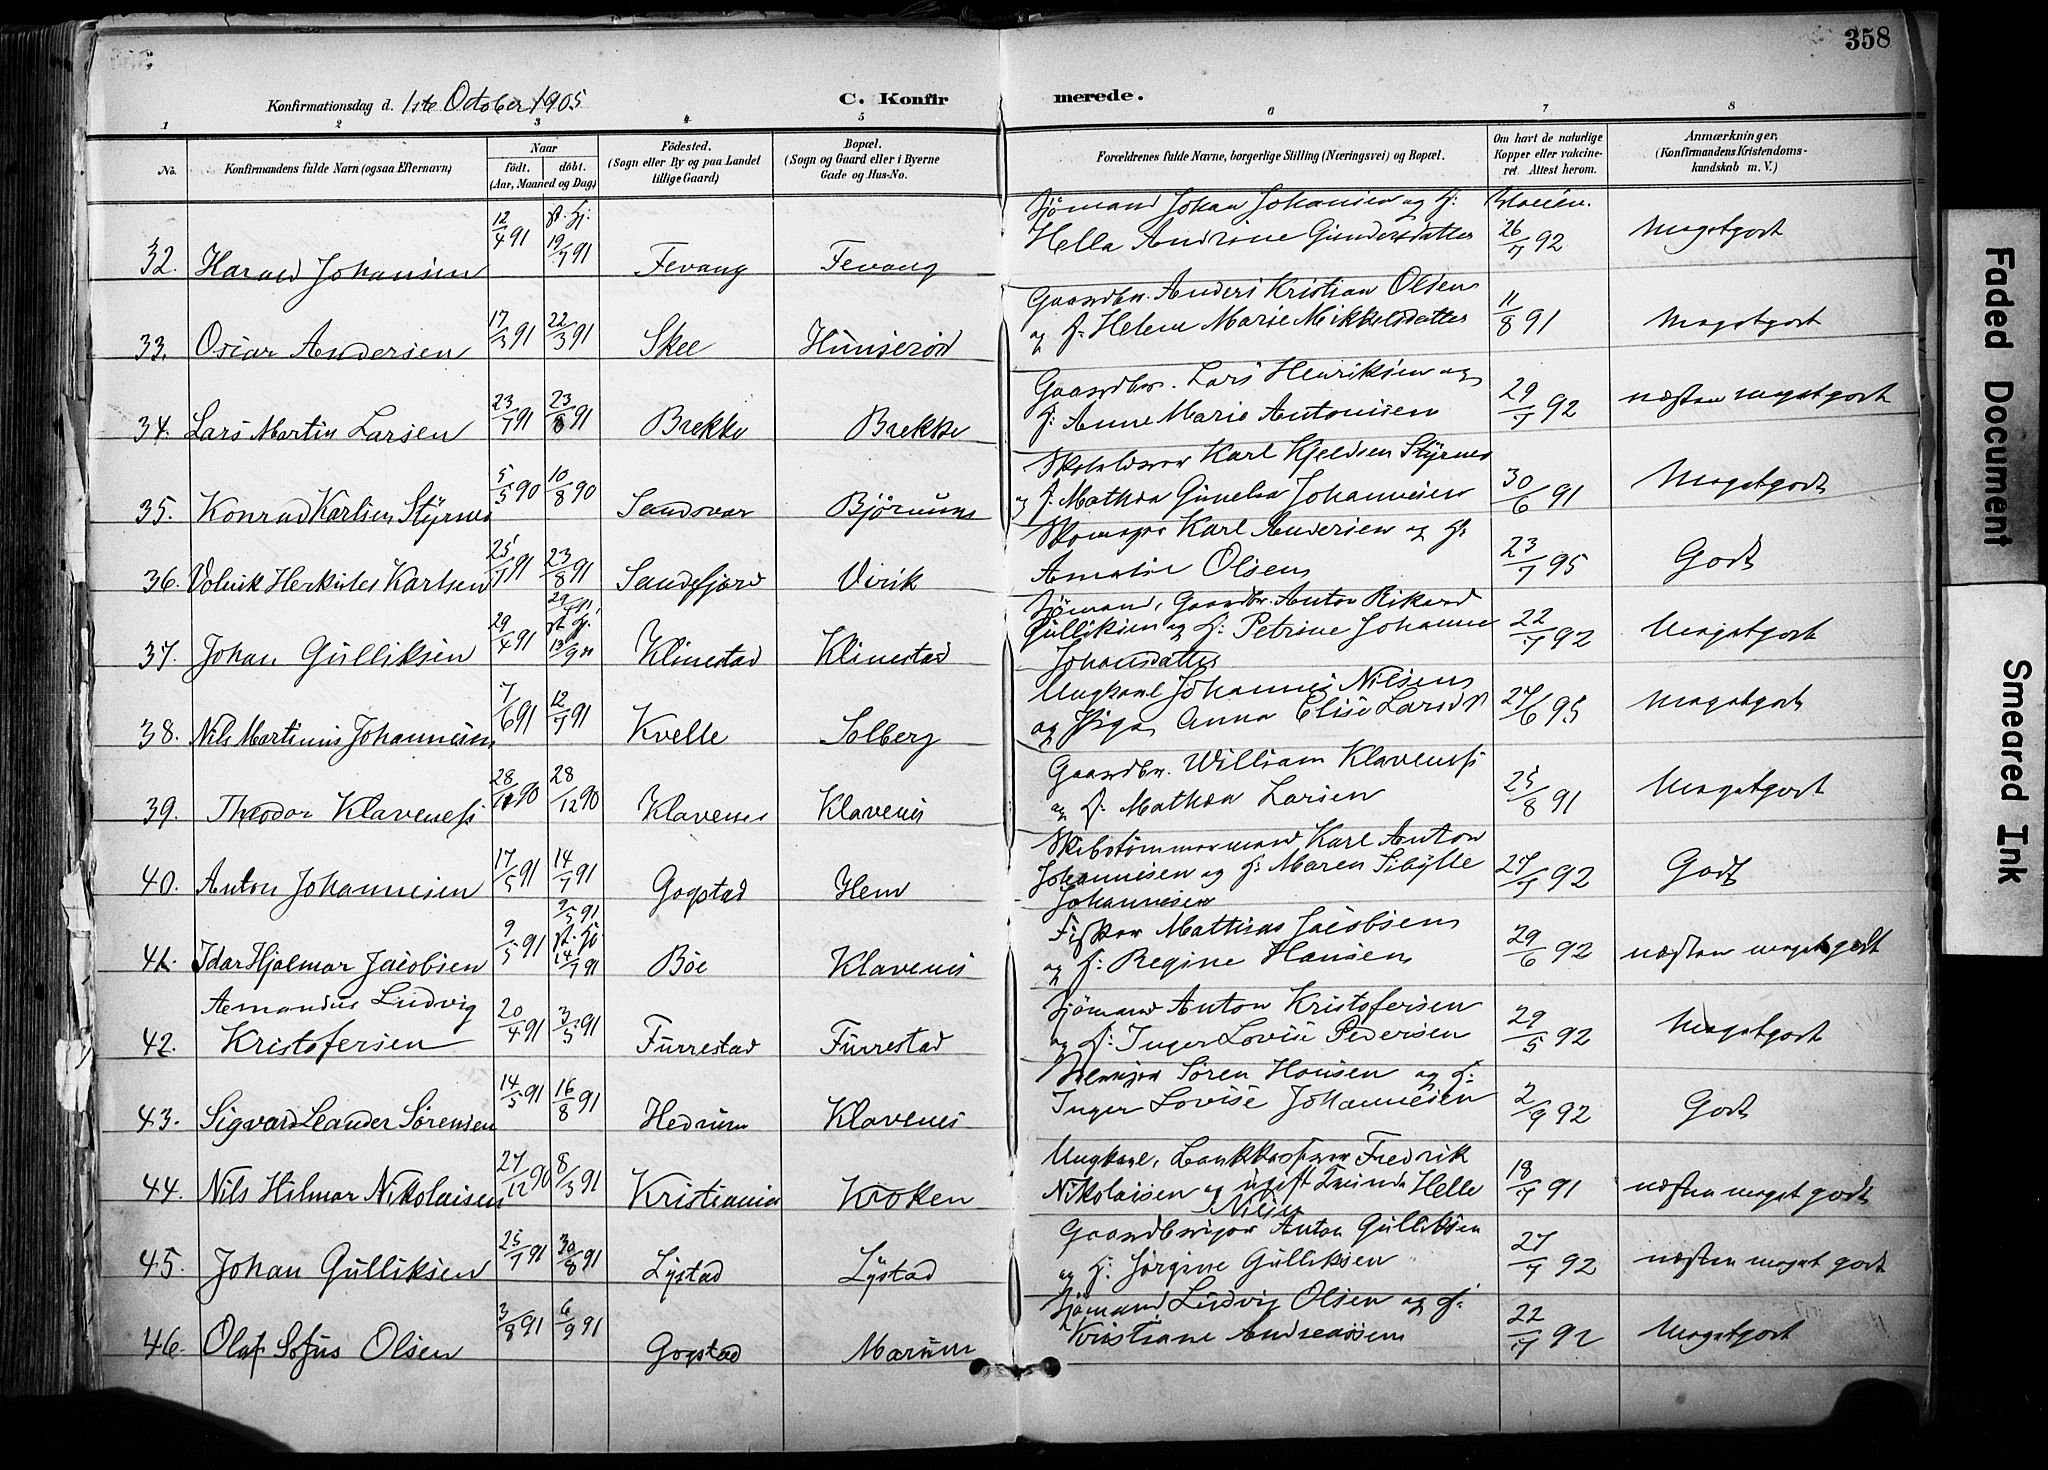 358
Konfirmationsdag d. 1ste October 1905
C. Konfirmerede.
1 2 3 4 5 6 7 8
No.
Konfirmandens fulde Navn (ogsaa Efternavn)
Naar
født. døbt.
(Aar, Maaned og Dag)
Fødested.
(Sogn eller By og paa Landet
tillige Gaard)
Bopæl.
(Sogn og Gaard eller i Byerne
Gade og Hus-No.
Forældrenes fulde Navne, borgerlige Stilling (Næringsvei) og Bopæl.
Om havt de naturlige
Kopper eller vakcine-
ret. Attest herom.
Anmærkninger,
(Konfirmandens Kristendoms-
kundskab m. V.)
Sjømand Johan Johansen og H:
32. Harald Johansen 12/4 91 19/7 91 Fevang Fevang Hella Andrine Gundersdatter 26/7 92 Megetgodt
Gaardbr. Anders Kristian Olsen
33. Oscar Andersen 17/3 91 22/3 91 Skee Hunserød og H: Helene Marie Mikkelsdatter 11/8 91 Megetgodt
Gaardbr. Lars Henriksen og
34. Lars Martin Larsen 23/7 91 23/8 91 Brekke Brekke H: Anne Marie Antonisen 29/7 92 næsten megetgodt
Karl Kjeldsen Styrnes
35. Konrad Karlsen Styrnes 5/5 90 10/8 90 Sandsvær Bjørnum og H: Mathea Gunelia Johannesen 30/6 91 Megetgodt
Skomager Karl Andersen og H:
36. Herkules Karlsen 25/7 91 23/8 91 Sandefjord Virik Amalie Olsen 23/7 95 Godt
Sjømand, Gaardbr. Anton Rikard
37. Johan Gulliksen 29/4 91 13/9 91 Klinestad Klinestad Gulliksen og H: Petrine Johanne 22/7 92 Megetgodt
Johansdatter
Ungkarl Johannes Nilsen
38. Nils Martinius Johannesen 7/6 91 12/7 91 Kvelle Solberg og Pige Anna Elise Larsd. 27/6 95 Megetgodt
Gaardbr. William Klaveness
39. Theodor Klaveness 28/11 90 28/12 90 Klavenes Klavenes og H: Mathea Larsen 25/8 91 Megetgodt
Skibstømmermand Karl Anton
40. Anton Johannesen 17/5 91 14/7 91 Gogstad Hem Johannesen og H: Maren Sibylle 27/7 92 Godt
Johannesen
Fisker Mathias Jacobsen
41. Idar Hjalmar Jacobsen 9/5 91 14/7 91 Bøe Klavenes og H: Regine Hansen 29/6 92 næsten megetgodt
Amandus Ludvig Sjømand Anton Kristofersen
42. Kristofersen 20/4 91 3/5 91 Furrestad Furrestad og H: Inger Lovise Pedersen 29/5 92 Megetgodt
Søren Hansen og H:
43. Sigvard Leander Sørensen 14/5 91 16/8 91 Hedrum Klavenes Inger Lovise Johannesen 2/9 92 Godt
Ungkarl, Fredrik
44. Nils Hilmar Nikolaisen 27/12 90 8/3 91 Kristiania Kroken Nikolaisen og ugift Helle 18/7 91 næsten meget godt
Gaardbruger Anton Gulliksen
45. Johan Gulliksen 25/7 91 30/8 91 Lystad Lystad og H: Jørgine Gulliksen 27/7 92 næsten meget godt
Sjømand Ludvig Olsen og H:
46. Olaf Sofus Olsen 3/8 91 6/9 91 Gogstad Marum Kristiane Andreassen 22/7 92 Megetgodt
Faded Document
Smeared Ink